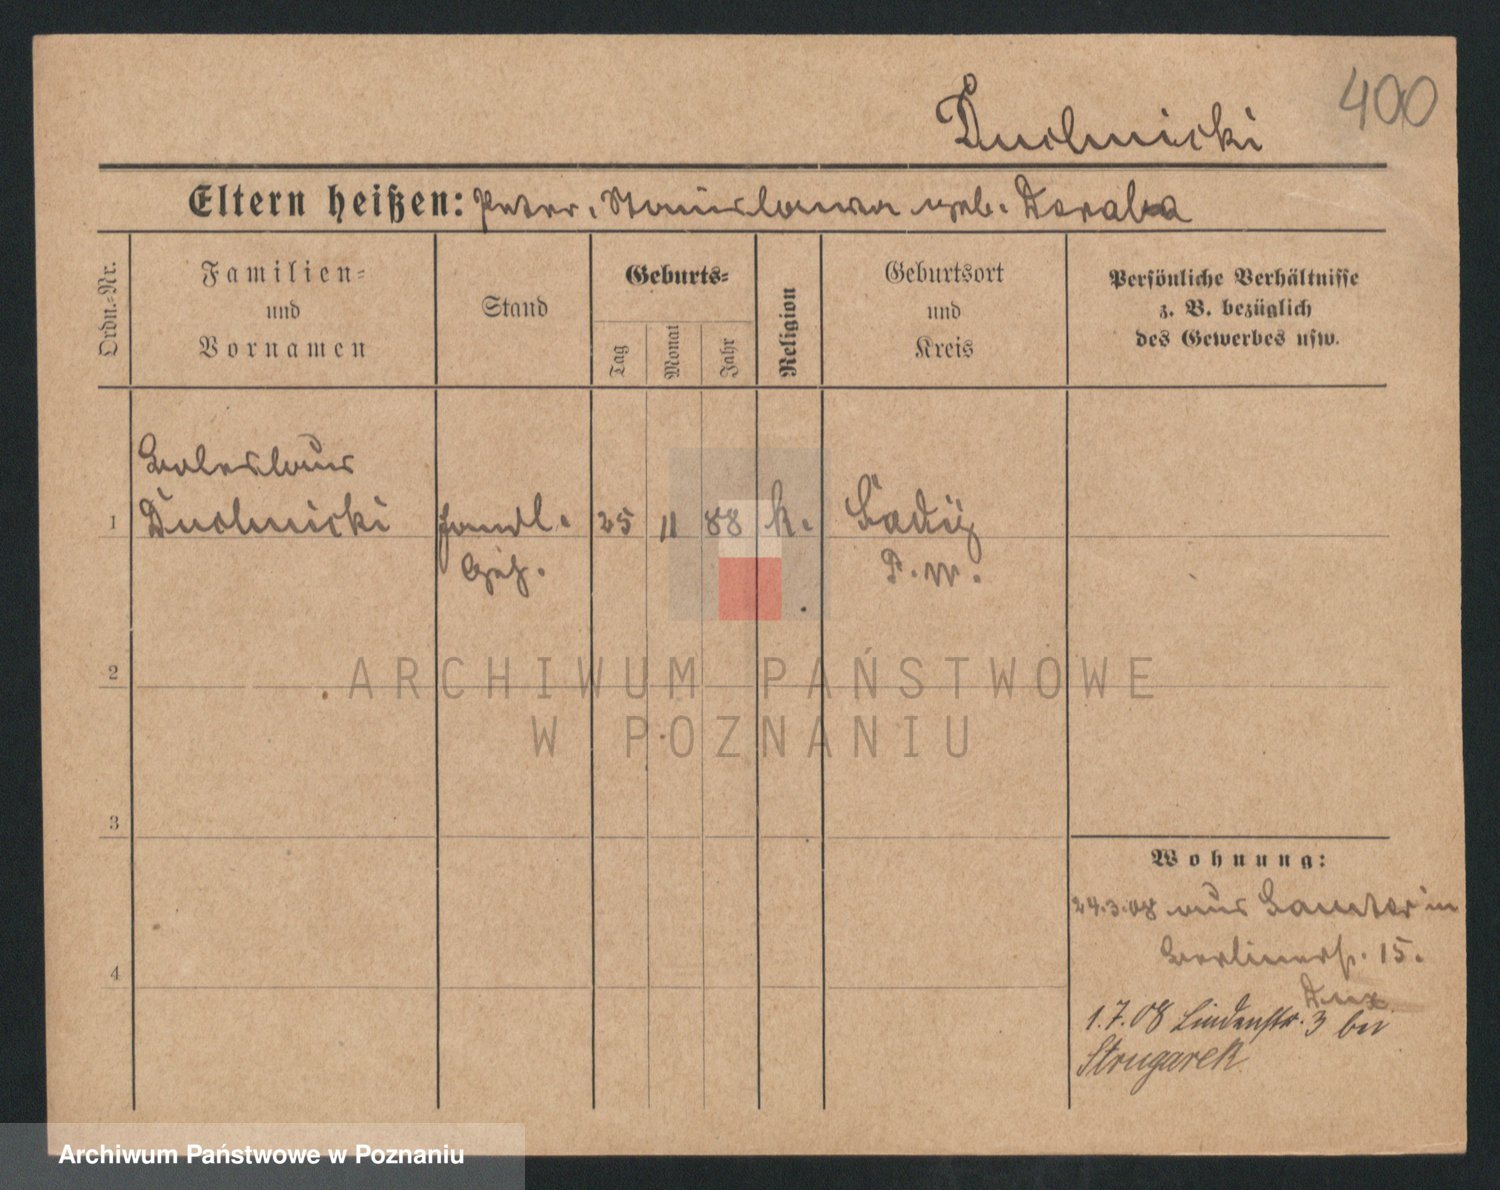 400
Dudmicki
Eltern heißen: Peter, Stanislawa geb. Derala
Ordn.-Nr.
Familien-
und
Vornamen
Stand
Geburts-
Tag
Monat
Jahr
Religion
Geburtsort
und
Kreis
Persönliche Verhältnisse
z. B. bezüglich
des Gewerbes usw.
Boleslaus
1 Handl. 25 11 88 k.
Geh. P. W.
2
ARCHIWUM PAŃSTWOWE
W POZNANIU
3
Wohnung:
24.3.08 aus Samter in
Berlinerstr. 15.
4
1.7.08 Lindenstr. 3 bei
Strugarek
Archiwum Państwowe w Poznaniu